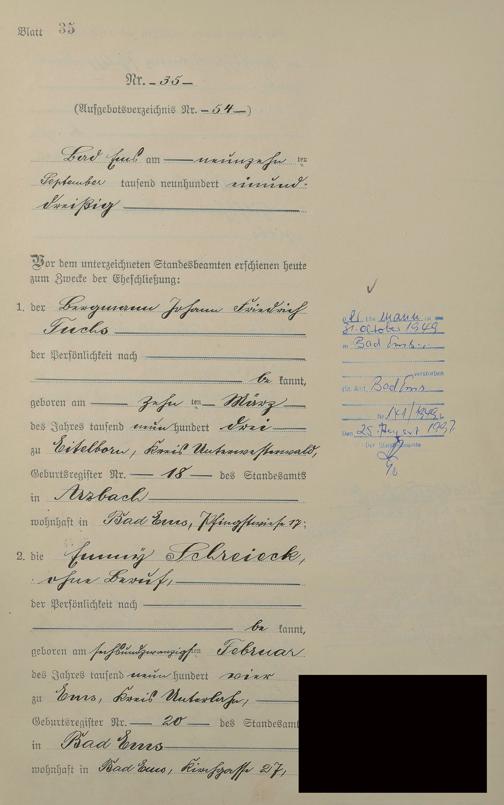 Blatt 35
Nr. - 35 -
(Aufgebotsverzeichnis Nr. - 54 -)
Bad Ems am — neunzehn ten
September tausend neunhundert einund-
dreißig
Vor dem unterzeichneten Standesbeamten erschienen heute
zum Zwecke der Eheschließung:
1. der Bergmann Johann Friedrich
Fuchs
der Persönlichkeit nach
be kannt,
geboren am — zehn ten — März —
des Jahres tausend neun hundert drei —
zu Eitelborn, Kreis Unterwesterwald,
Geburtsregister Nr. — 18 — des Standesamts
in Arzbach
wohnhaft in Bad Ems, Pfingstwiese 17;
2. die Emmy Schreieck,
ohne Beruf,
der Persönlichkeit nach
be kannt,
geboren am sechsundzwanzigsten Februar
des Jahres tausend neun hundert vier
zu Ems, Kreis Unterlahn,
Geburtsregister Nr. — 20 — des Standesamt
in Bad Ems
wohnhaft in Bad Ems, Kirchgasse 27,
Mann
31. October 1949
in Bad Ems
verstorben
Bad Ems
Nr. 141/1949
Den 25. August 1997
Der Standesbeamte